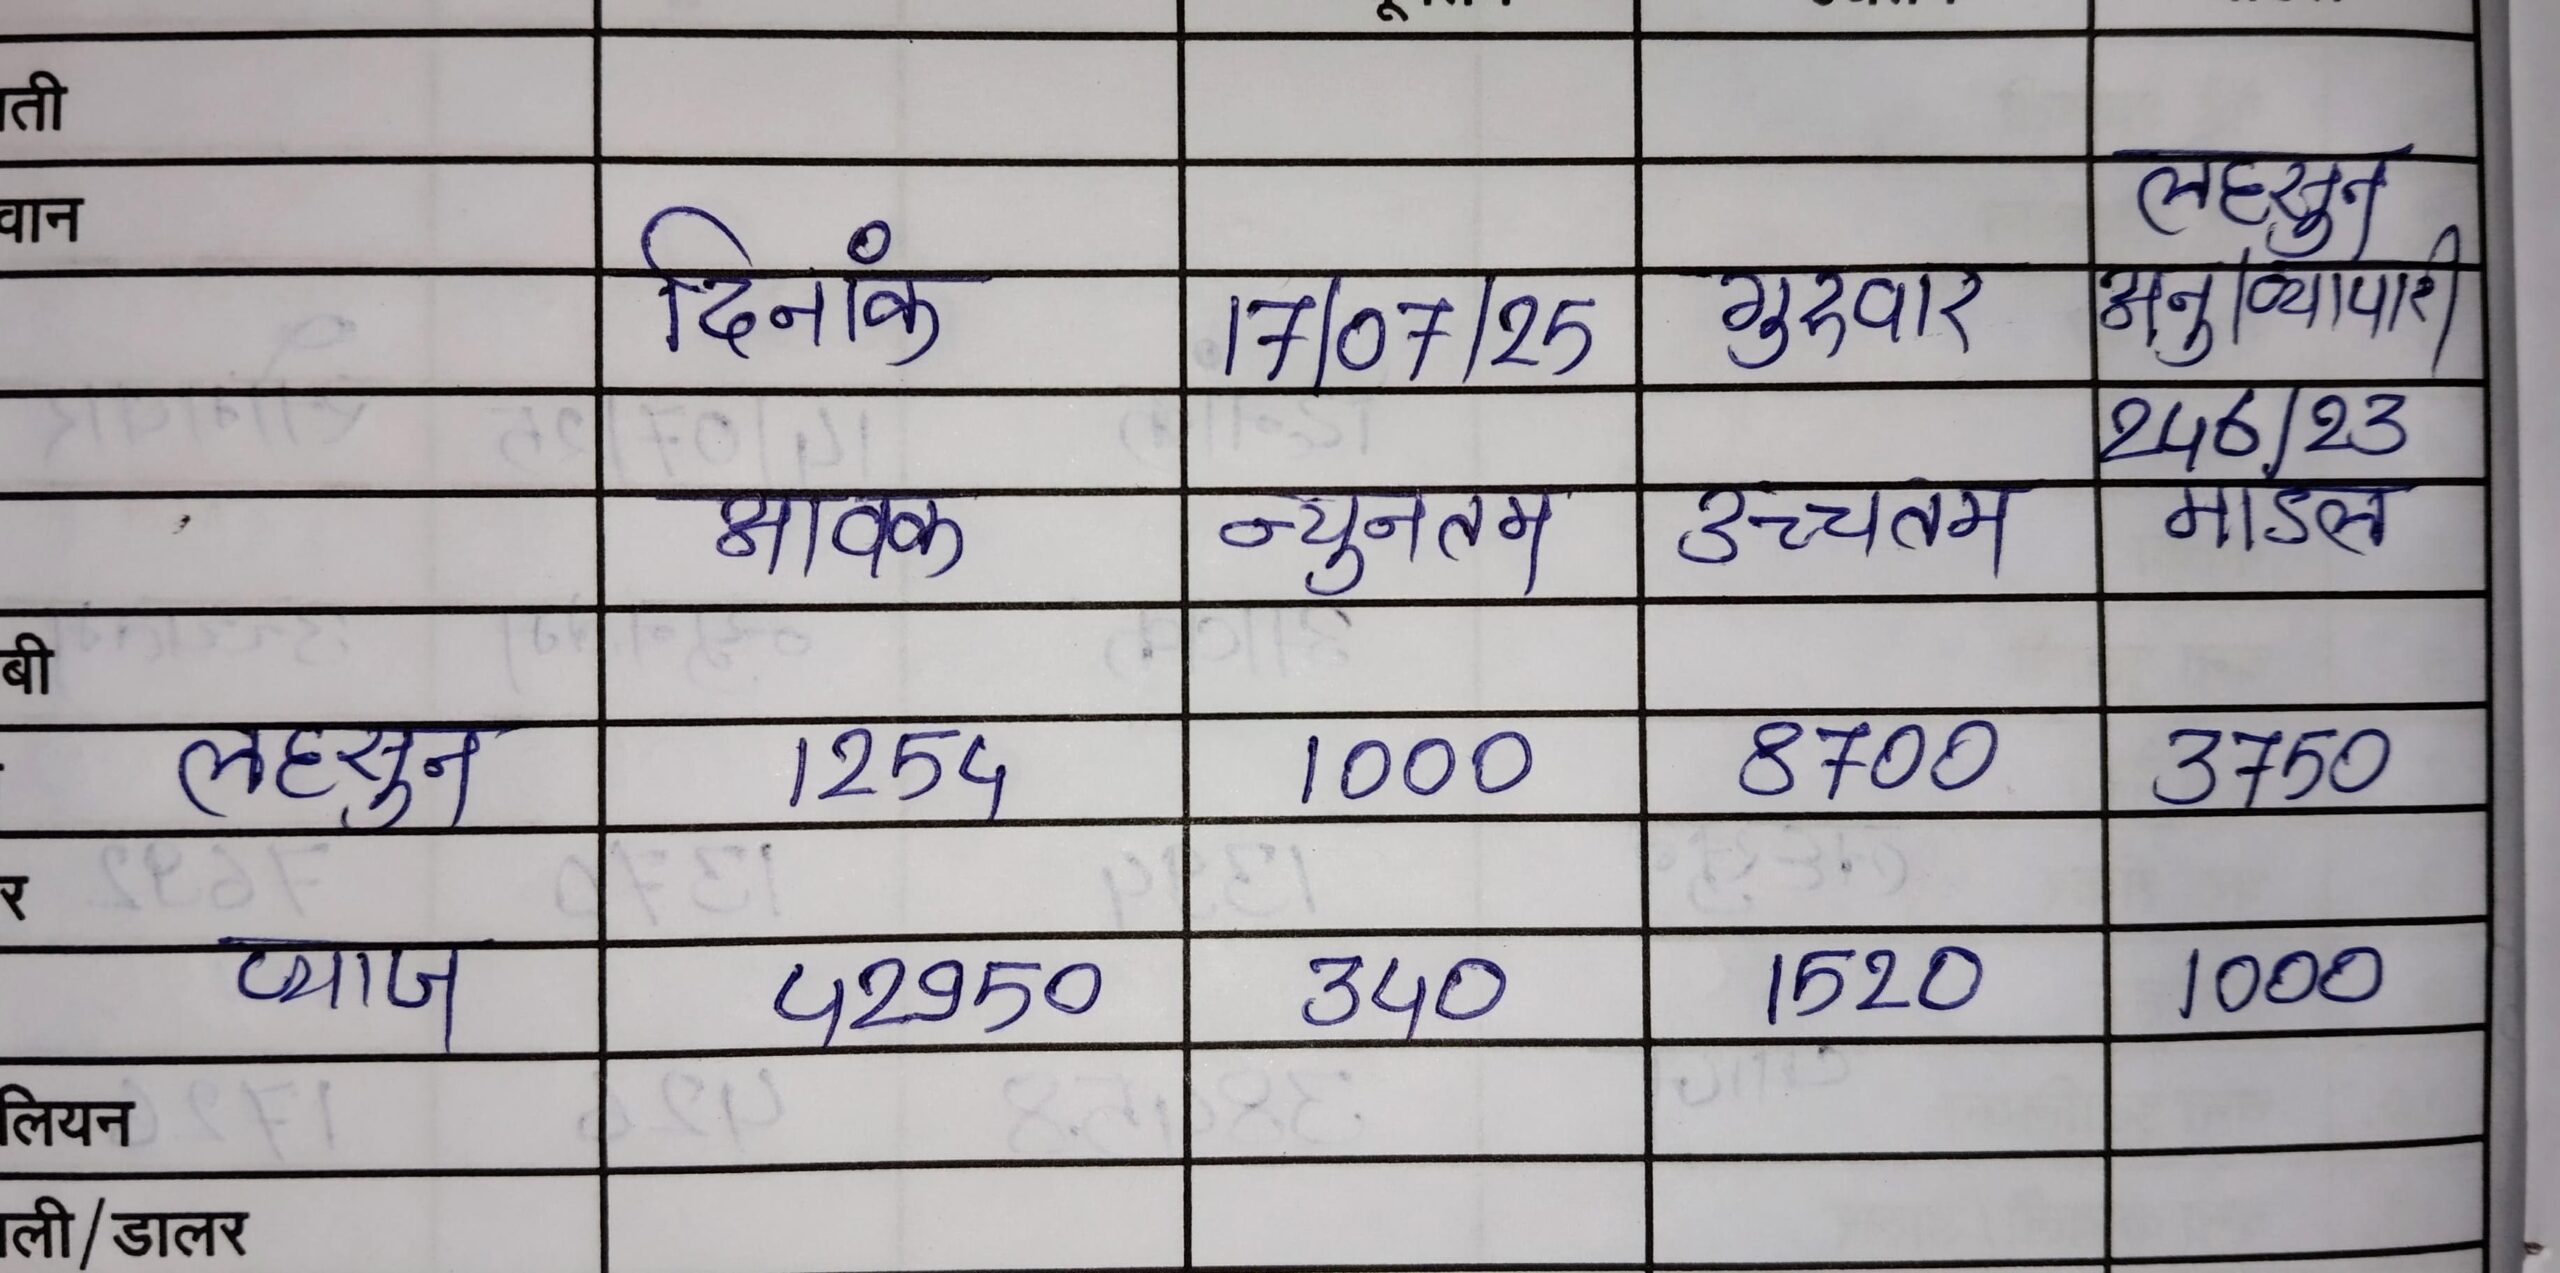 लहसुन
दिनांक 17/07/25 गुरुवार अनु/व्यापारी
246/23
आवक न्युनतम उच्चतम माडल
लहसुन 1254 1000 8700 3750
प्याज 42950 340 1520 1000
लियन
ली/डालर